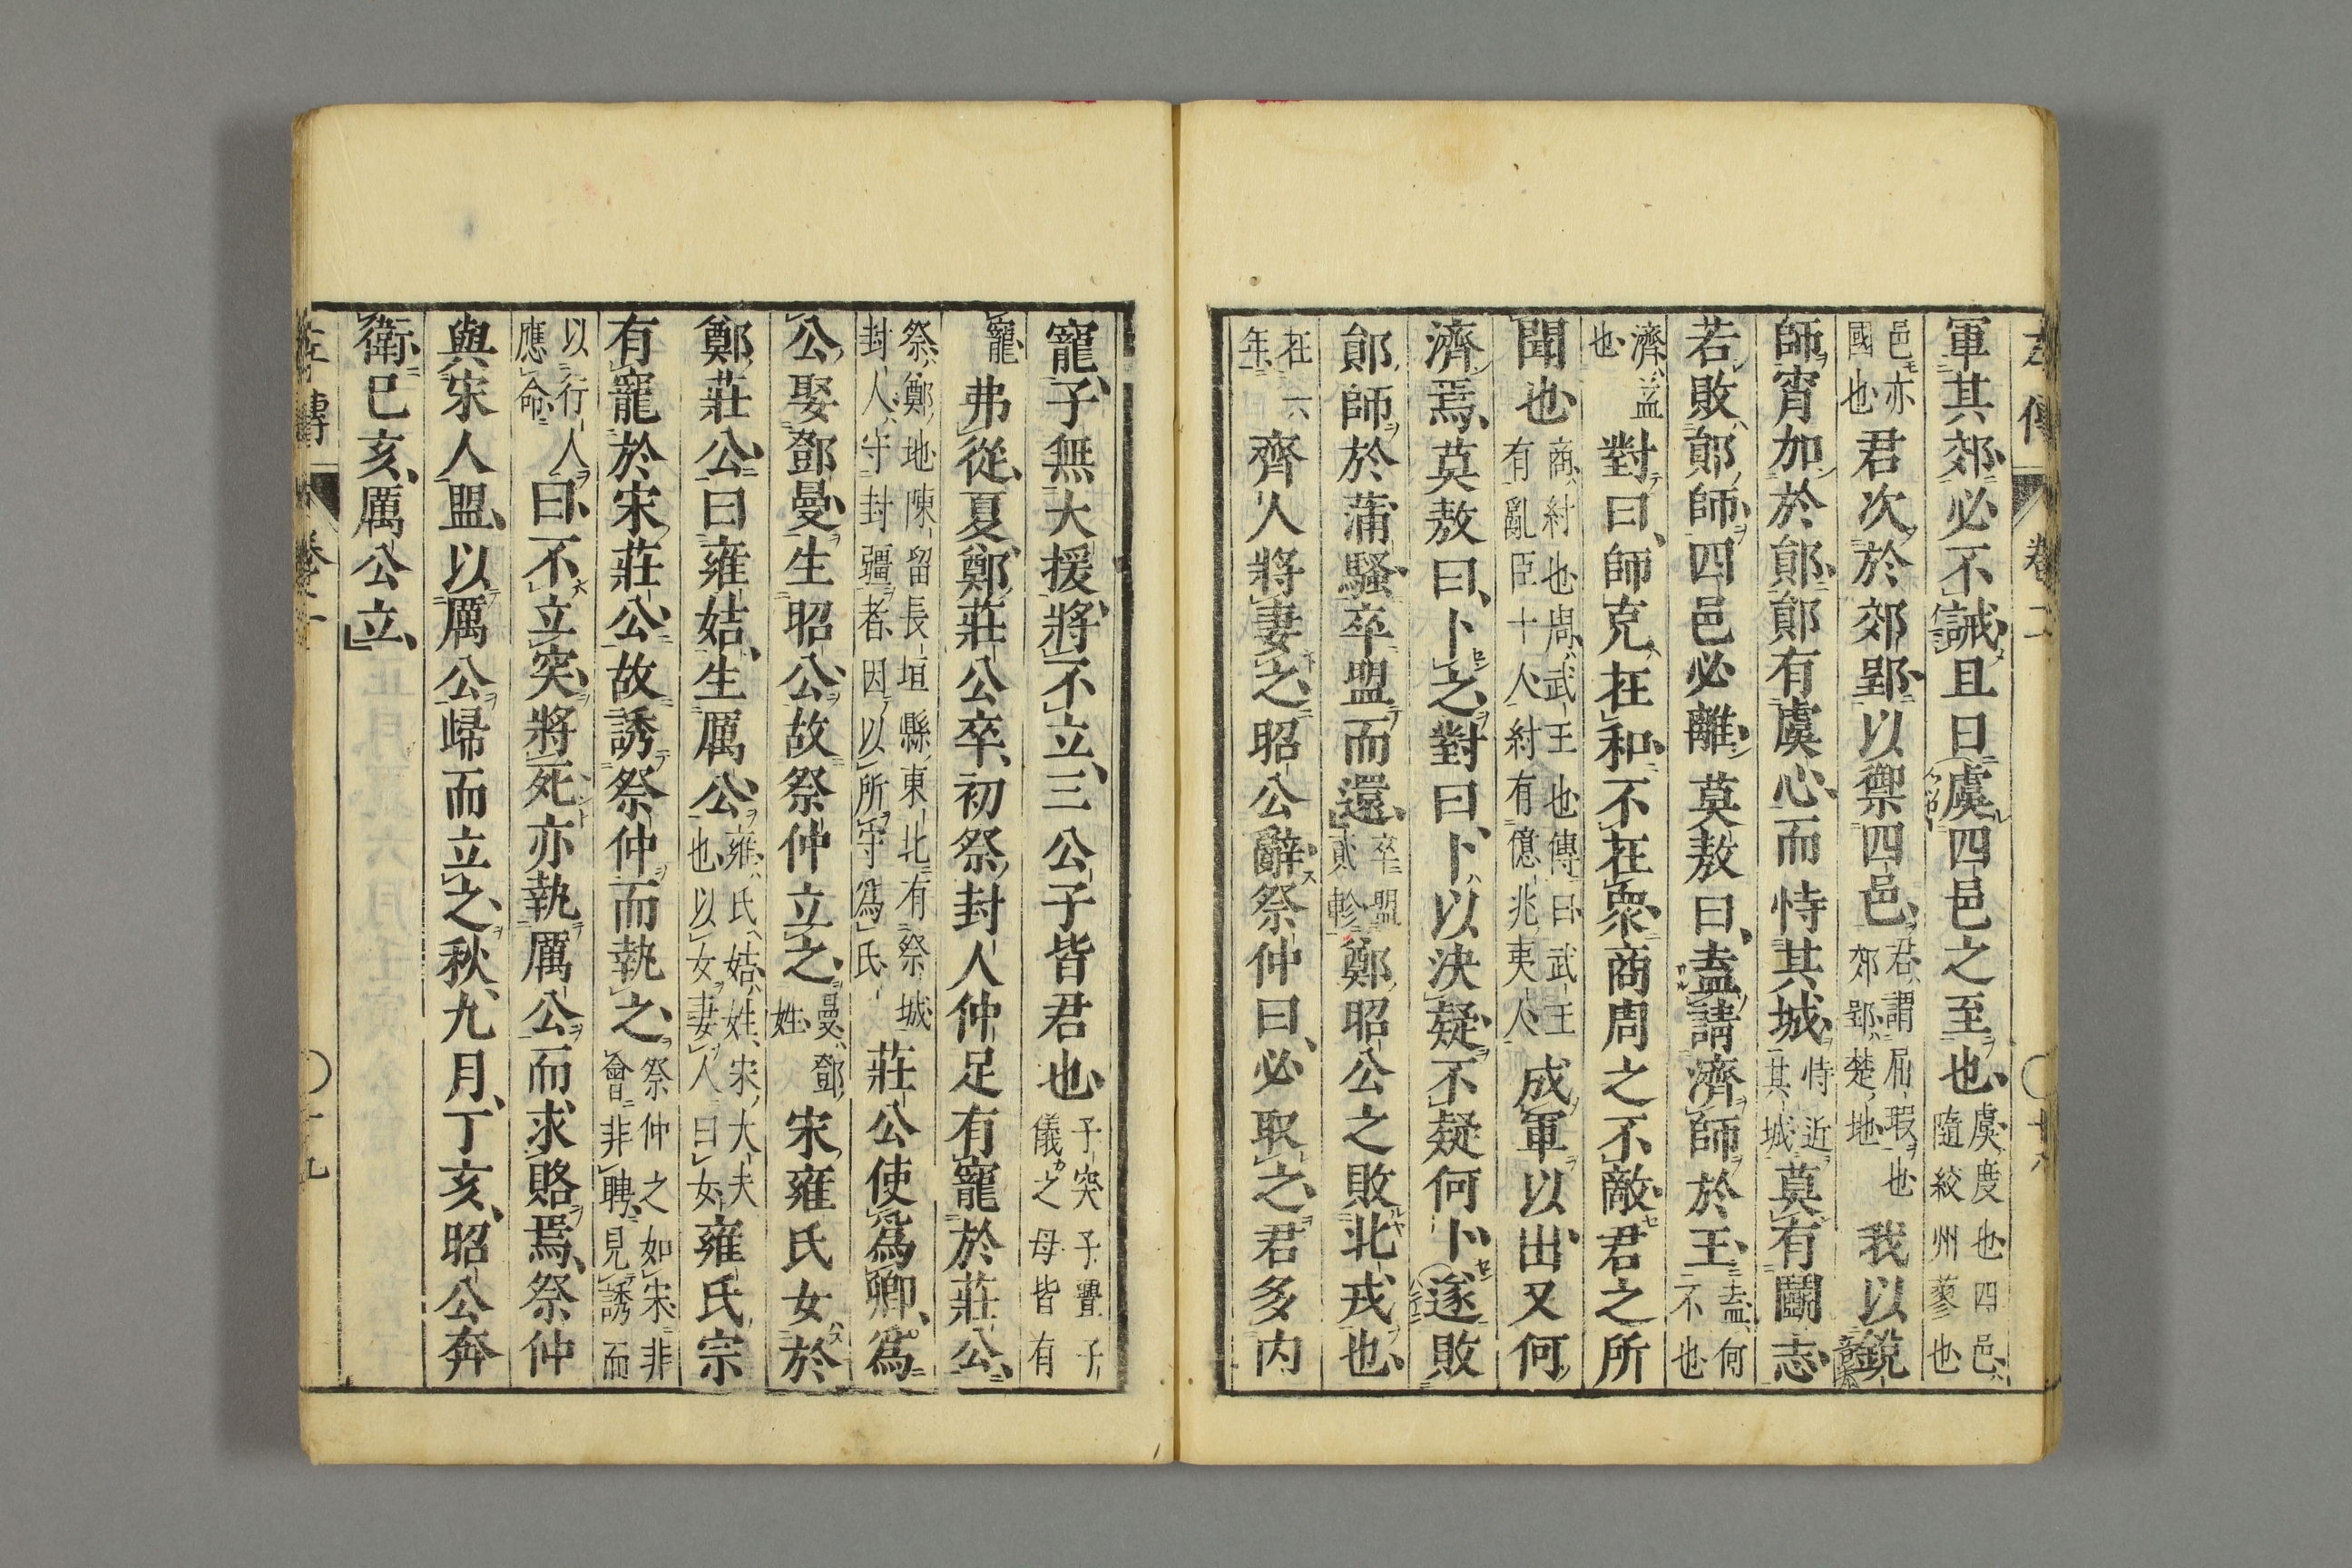 軍其郊必不誡且日虞四邑之至也虞度也四邑隨絞州蓼也
邑亦國也君次於郊郢以禦四邑君謂屈瑕也郊郢楚地我以銳
師宵加於鄖鄖有虞心而恃其城恃近其城莫有鬬志
若敗鄖師四邑必離莫敖曰盍請濟師於王盍何不也
濟益也對曰師克在和不在衆商周之不敵君之所
聞也商紂也周武王也傳曰武王有亂臣十人紂有億兆夷人成軍以出又何
濟焉莫敖曰卜之對曰卜以決疑不疑何卜遂敗
鄖師於蒲騷卒盟而還卒盟貳軫鄭昭公之敗北戎也
在六年齊人將妻之昭公辭祭仲曰必取之君多内
寵子無大援將不立三公子皆君也子突子亹子儀之母皆有
寵弗從夏鄭莊公卒初祭封人仲足有寵於莊公
祭鄭地陳留長垣縣東北有祭城封人守封疆者因以所守爲氏莊公使爲卿爲
公娶鄧曼生昭公故祭仲立之曼鄧姓宋雍氏女於
鄭莊公曰雍姞生厲公雍氏姞姓宋大夫也以女妻人曰女雍氏宗
有寵於宋莊公故誘祭仲而執之祭仲之如宋非會非聘見誘而
以行人應命曰不立突將死亦執厲公而求賂焉祭仲
與宋人盟以厲公歸而立之秋九月丁亥昭公奔
衛巳亥厲公立